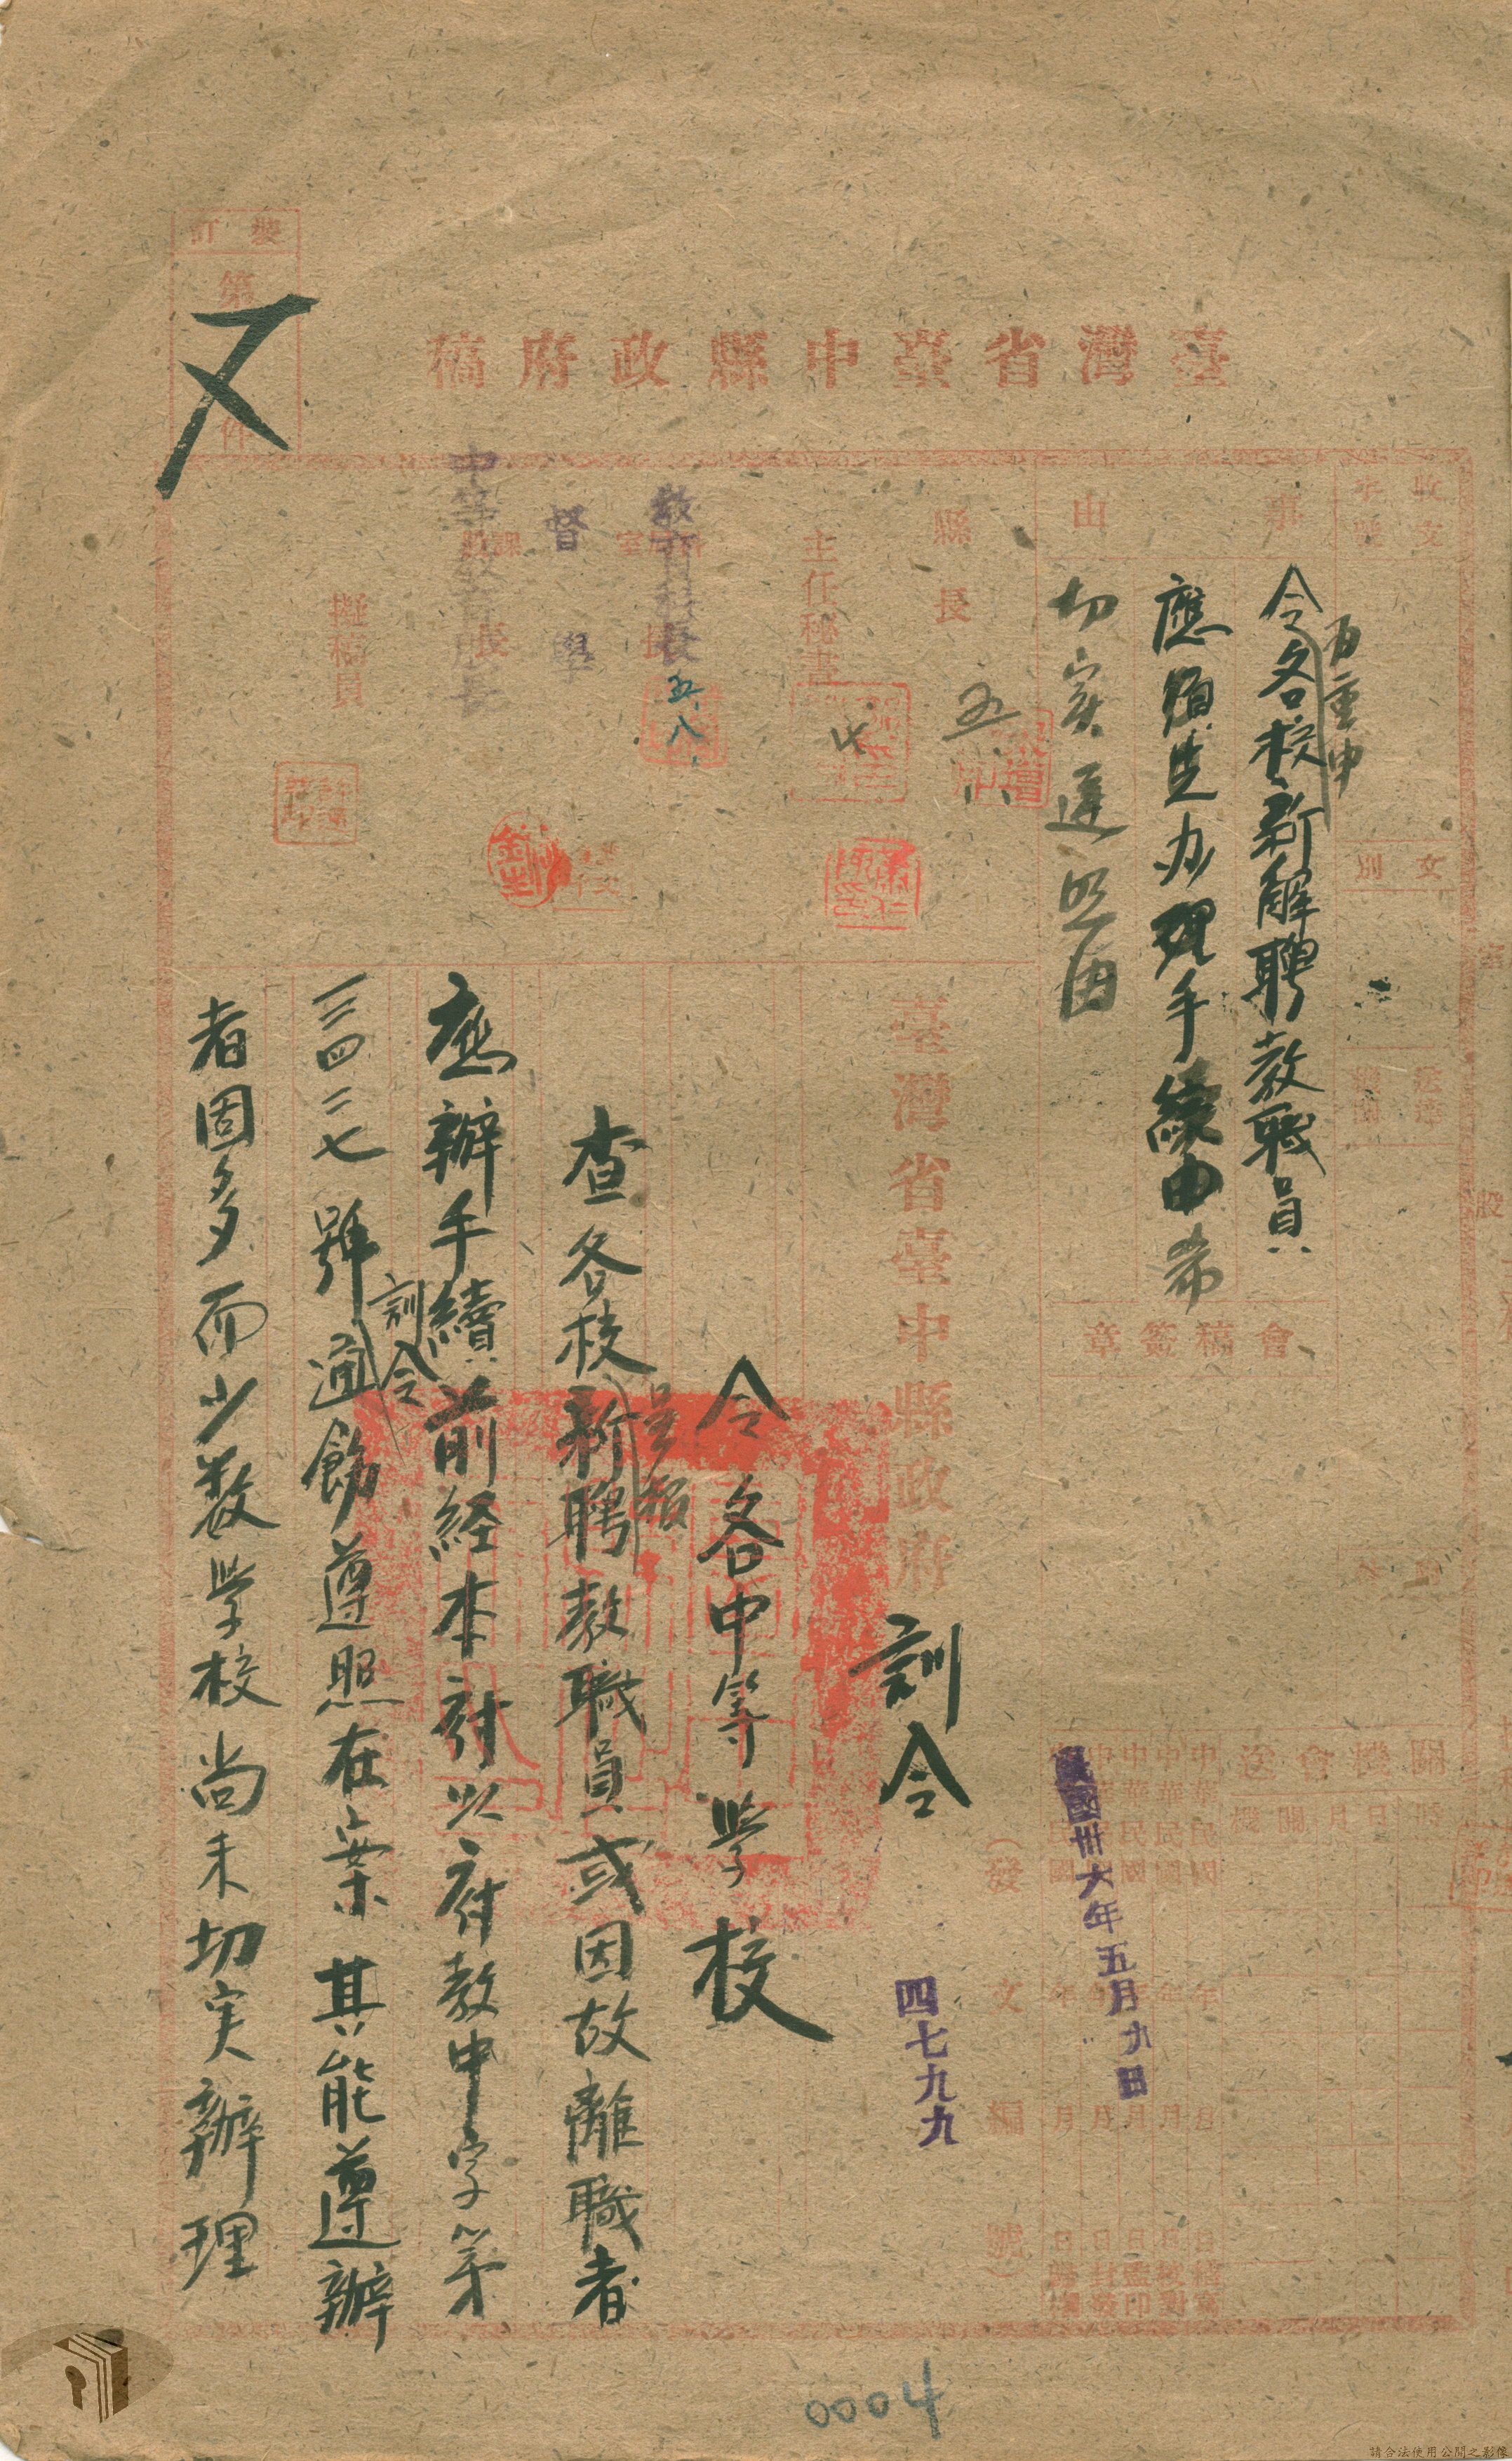 裝訂
第
件
又
臺灣省臺中縣政府稿
收文
字號
文別
送達機關
事由
為重申
令各校新解聘教職員
應須先办理手續由希
切实遵照由
會稿簽章
縣長
五
主任秘書
教育科長
五八
督學
中等教育股長
課長
擬稿員
會送機關
中華民國
民國卅六年五月九日
臺灣省臺中縣政府
訓令
(發文編號)
四七九九
令各中等學校
呈報
查各校新聘教職員或因故離職者
應辦手續前經本府以府教中字第
訓令
三四二七號通飭遵照在案其能遵辦
者固多而少数学校尚未切实辦理
0004
請合法使用公開之影像